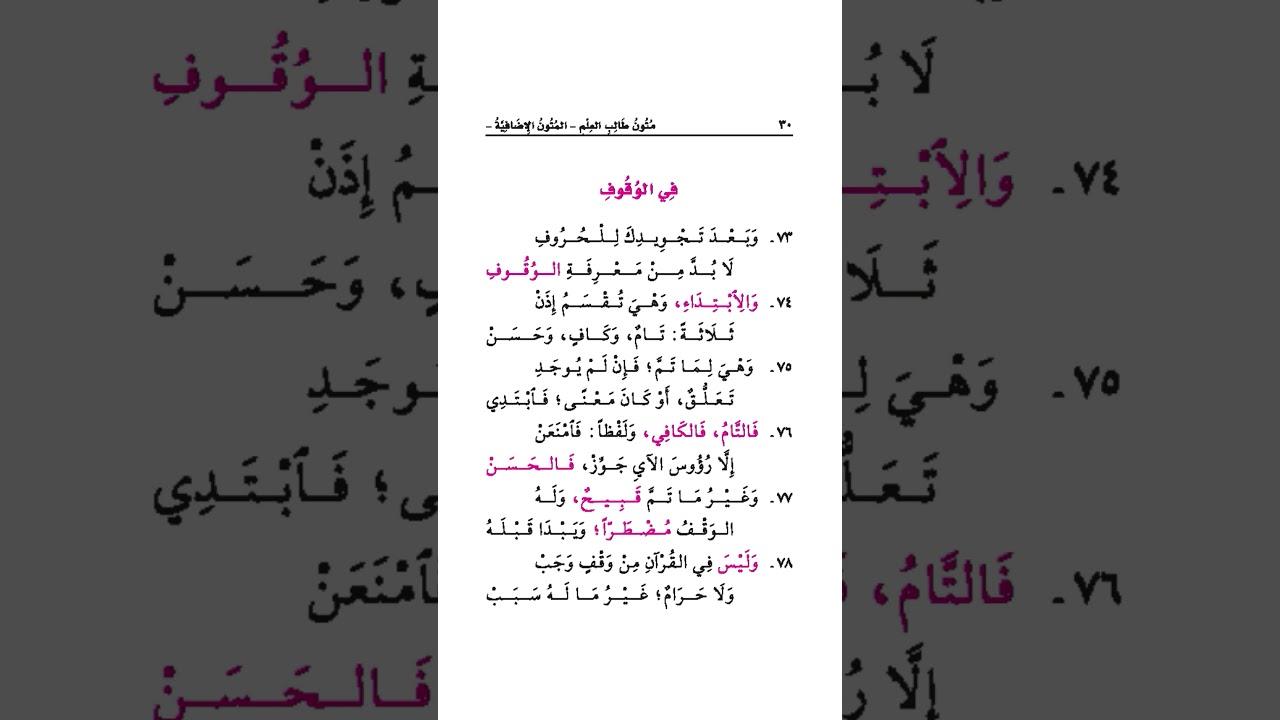 ٣٠ مُتُونُ طَالِبِ العِلْمِ - المُتُونُ الإِضَافِيَّةُ -
فِي الوُقُوفِ
٧٣- وَبَعْدَ تَجْوِيدِكَ لِلْحُرُوفِ
لَا بُدَّ مِنْ مَعْرِفَةِ الوُقُوفِ
٧٤- وَالِٱبْتِدَاءِ، وَهْيَ تُقْسَمُ إِذَنْ
ثَلَاثَةً: تَامٌ، وَكَافٍ، وَحَسَنْ
٧٥- وَهْيَ لِمَا تَمَّ؛ فَإِنْ لَمْ يُوجَدِ
تَعَلُّقٌ، أَوْ كَانَ مَعْنًى؛ فَٱبْتَدِي
٧٦- فَالتَّامُ، فَالكَافِي، وَلَفْظاً: فَٱمْنَعَنْ
إِلَّا رُؤُوسَ الآيِ جَوِّزْ، فَالحَسَنْ
٧٧- وَغَيْرُ مَا تَمَّ قَبِيحٌ، وَلَهُ
الوَقْفُ مُضْطَرّاً؛ وَيَبْدَا قَبْلَهُ
٧٨- وَلَيْسَ فِي القُرْآنِ مِنْ وَقْفٍ وَجَبْ
وَلَا حَرَامٌ؛ غَيْرُ مَا لَهُ سَبَبْ